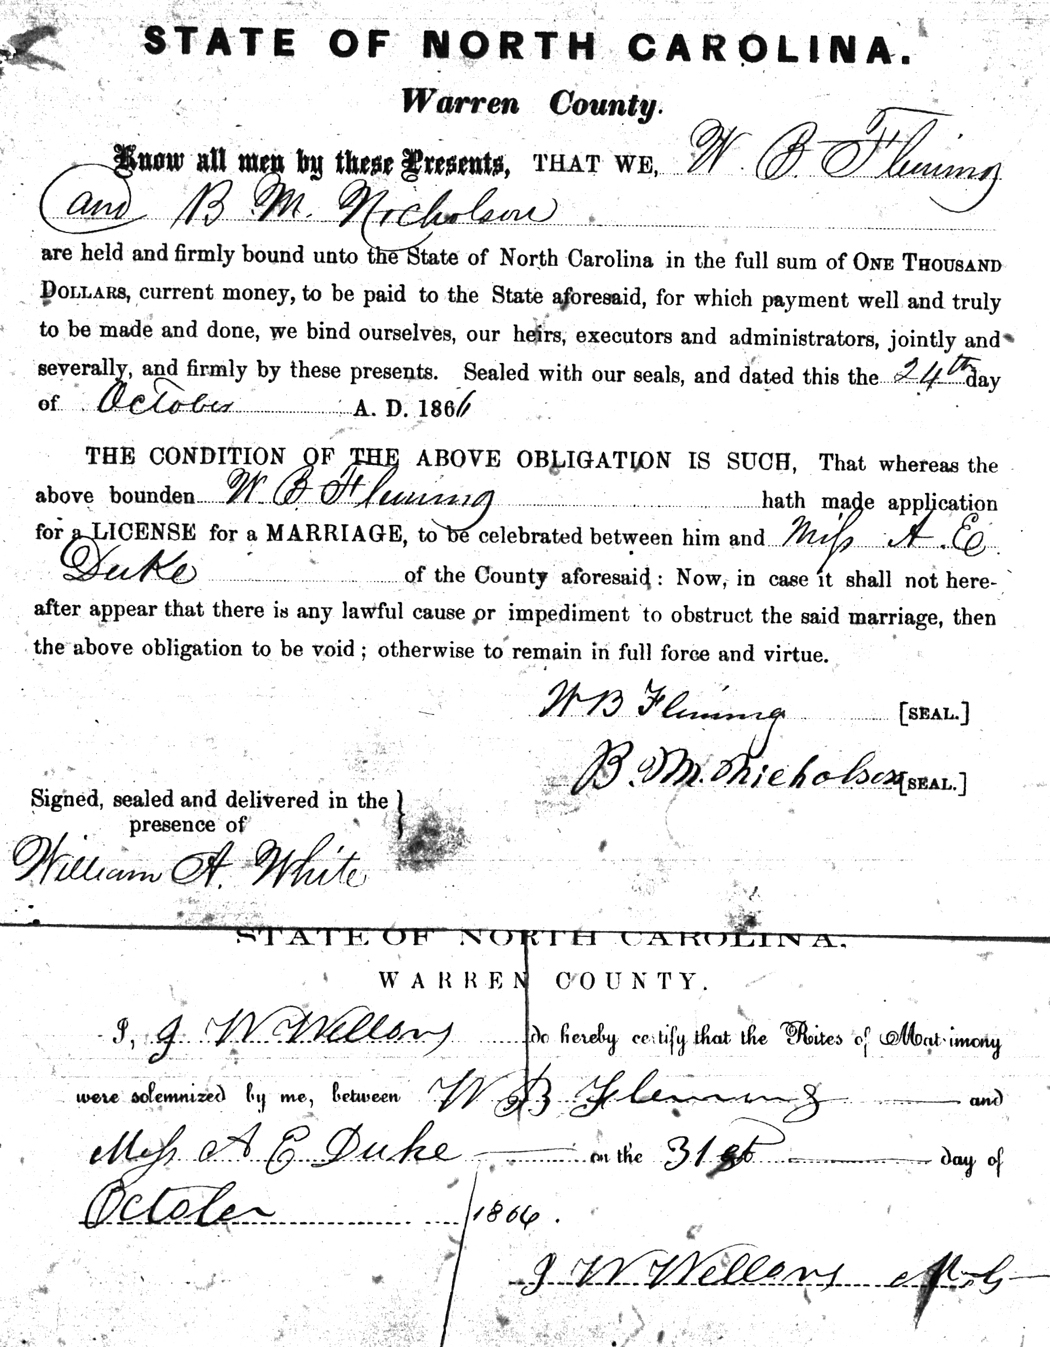 STATE OF NORTH CAROLINA.
Warren County.
Know all men by these Presents, THAT WE, W. B. Fleming
and B. M. Nicholson
are held and firmly bound unto the State of North Carolina in the full sum of ONE THOUSAND
DOLLARS, current money, to be paid to the State aforesaid, for which payment well and truly
to be made and done, we bind ourselves, our heirs, executors and administrators, jointly and
severally, and firmly by these presents. Sealed with our seals, and dated this the 24th day
of October A. D. 1866
THE CONDITION OF THE ABOVE OBLIGATION IS SUCH, That whereas the
above bounden W B Fleming hath made application
for a LICENSE for a MARRIAGE, to be celebrated between him and Miss A. E
Duke of the County aforesaid: Now, in case it shall not here-
after appear that there is any lawful cause or impediment to obstruct the said marriage, then
the above obligation to be void; otherwise to remain in full force and virtue.
W B Fleming [SEAL.]
B. M. Nicholson [SEAL.]
Signed, sealed and delivered in the }
presence of
William A. White
STATE OF NORTH CAROLINA.
WARREN COUNTY.
I, J W Wellons do hereby certify that the Rites of Matrimony
were solemnized by me, between W B Fleming and
Miss A E Duke on the 31st day of
October 1866.
J W Wellons M. G